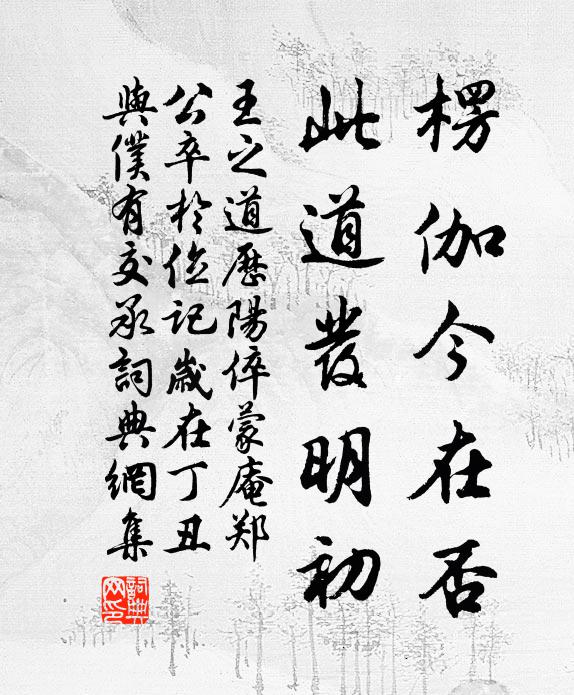 楞伽今在否
此道发明初
王之道历阳倅蒙庵郑
公卒于位记岁在丁丑
与仆有交承词典网集
詞典
网印